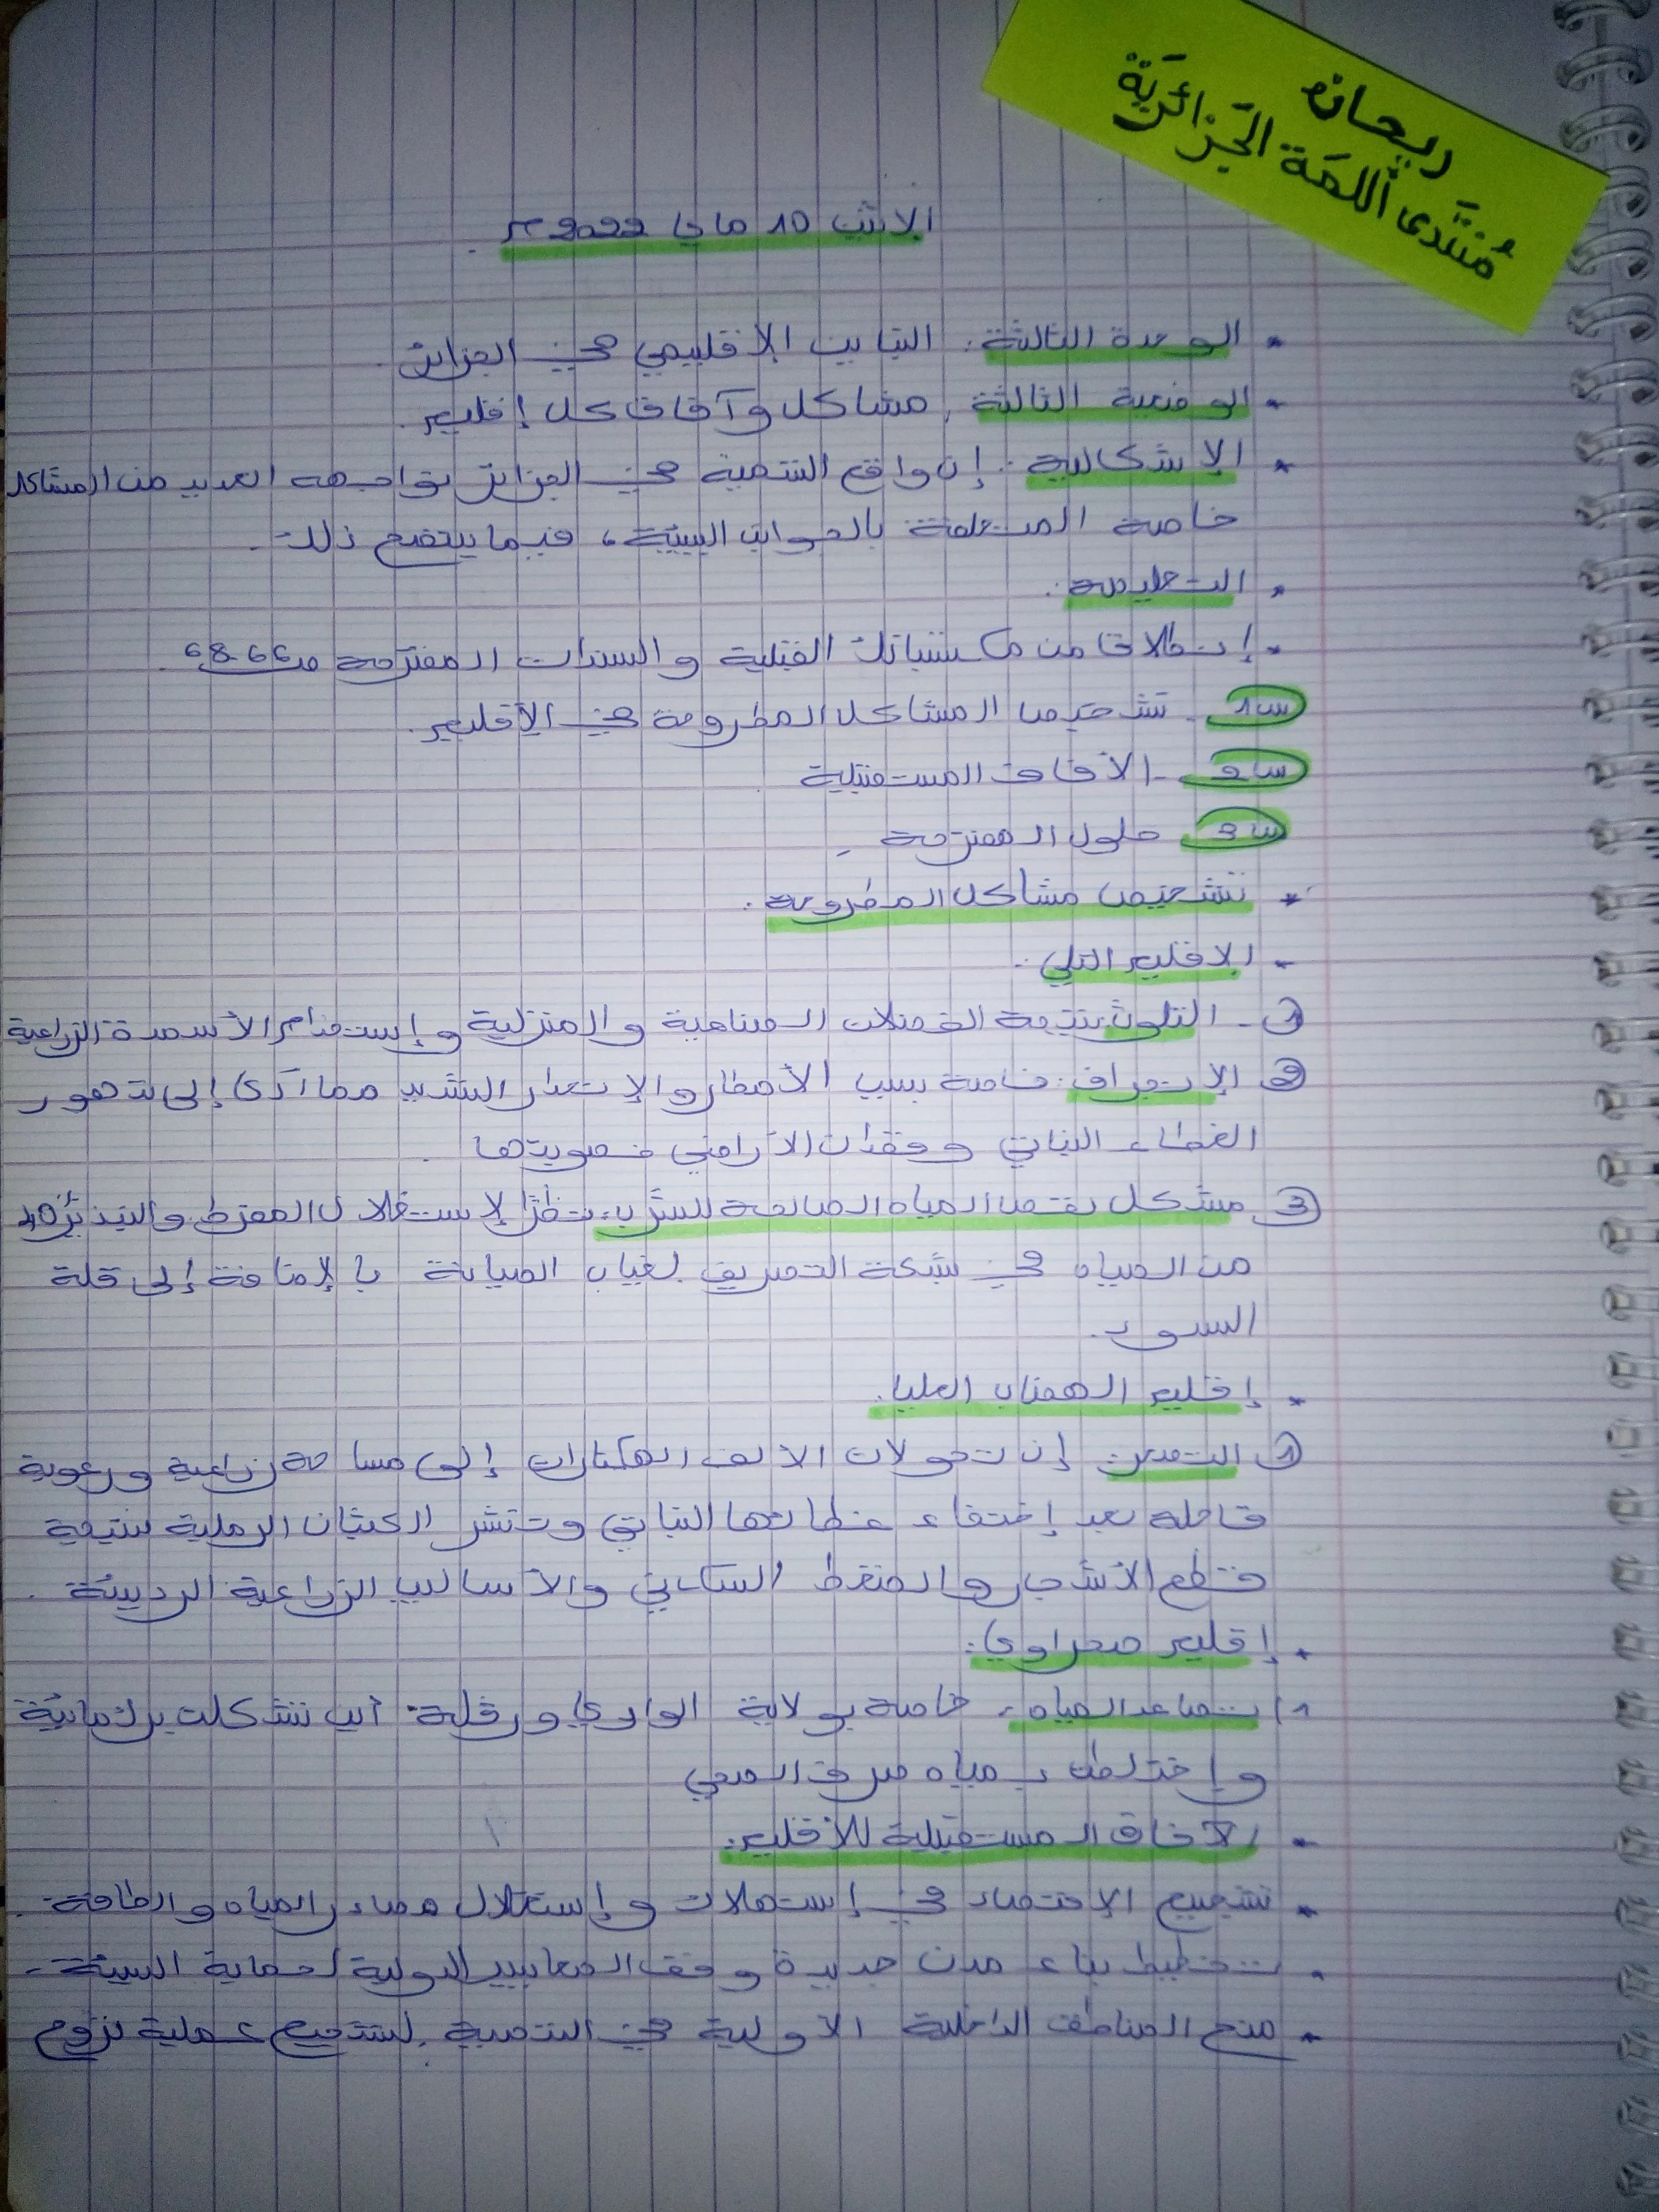 ريحانة
مُنتَدى اللمَة الجَزائريَة
الاثنين 10 ماي 2022 م.
* الوحدة الثالثة: التباين الإقليمي في الجزائر.
* الوضعية الثالثة: مشاكل وآفاق كل إقليم.
* الإشكالية: إن واقع التنمية في الجزائر يواجهه العديد من المشاكل
خاصة المتعلقة بالجوانب البيئية، فيما يتضح ذلك.
* التعليمة:
- إنطلاقا من مكتسباتك القبلية والسندات المقترحة ص66-68.
س1 - تشخيص المشاكل المطروحة في الإقليم.
س2 - الآفاق المستقبلية
س3 حلول المقترحة -
* تشخيص مشاكل المطروحة:
- الاقليم التلي:
① - التلوث نتيجة الفضلات الصناعية والمنزلية وإستخدام الأسمدة الزراعية
② الإنجراف: خاصة بسبب الأمطار والإنحدار الشديد مما أدى إلى تدهور
الغطاء النباتي وفقدان الأراضي خصوبتها.
③ مشكل نقص المياه الصالحة للشرب: نظرًا لإستغلال المفرط والتبذير 40
من المياه في شبكة التصريف لغياب الصيانة بالإضافة إلى قلة
السدود.
* إقليم الهضاب العليا:
① التصحر: إن تحولات الالف الهكتارات إلى مساحة زراعية ورعوية
قاحلة بعد إختفاء غطائها النباتي وتنشر الكثبان الرملية نتيجة
قطع الأشجار والضغط السكاني والأساليب الزراعية الرديئة.
* إقليم صحراوي:
1) تصاعد المياه: خاصة بولاية الوادي وورقلة أين تشكلت برك مائية
وإختلطت بمياه صرف الصحي
* الآفاق المستقبلية للأقليم:
* تشجيع الإقتصاد في إستهلاك وإستغلال مصادر المياه والطاقة.
* تخطيط بناء مدن جديدة وفق المعايير الدولية لحماية البيئة.
* منح المناطق الداخلية الأولية في التنمية لتشجيع عملية نزوح